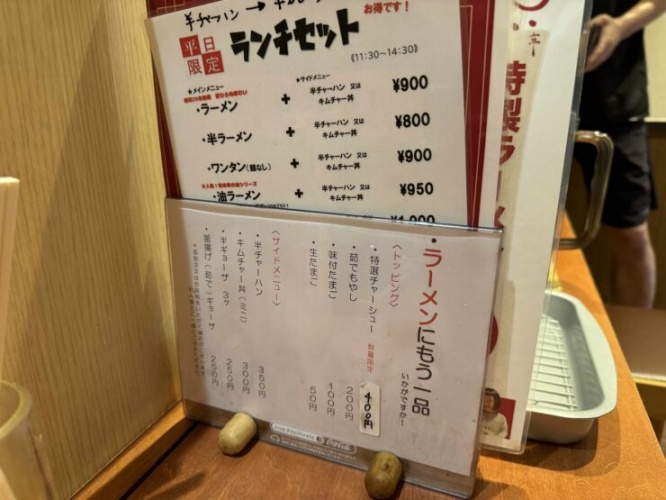 半チャーハン →
お得です!
平日
限定
ランチセット
《11:30~14:30》
★メインメニュー
★サイドメニュー
・ラーメン
+
半チャーハン 又は
キムチャー丼
¥900
・半ラーメン
+
半チャーハン 又は
キムチャー丼
¥800
・ワンタン(麺なし)
+
半チャーハン 又は
キムチャー丼
¥900
・油ラーメン
+
半チャーハン 又は
キムチャー丼
¥950
・ラーメンにもう一品
いかがですか!
〈トッピング〉
・特選チャーシュー 数量限定 400円
・茹でもやし 200円
・味付たまご 100円
・生たまご 50円
〈サイドメニュー〉
・半チャーハン 350円
・キムチャー丼(ミニ) 300円
・半ギョーザ 3ケ 250円
・釜揚げ(茹で)ギョーザ 250円
特製ラーメ